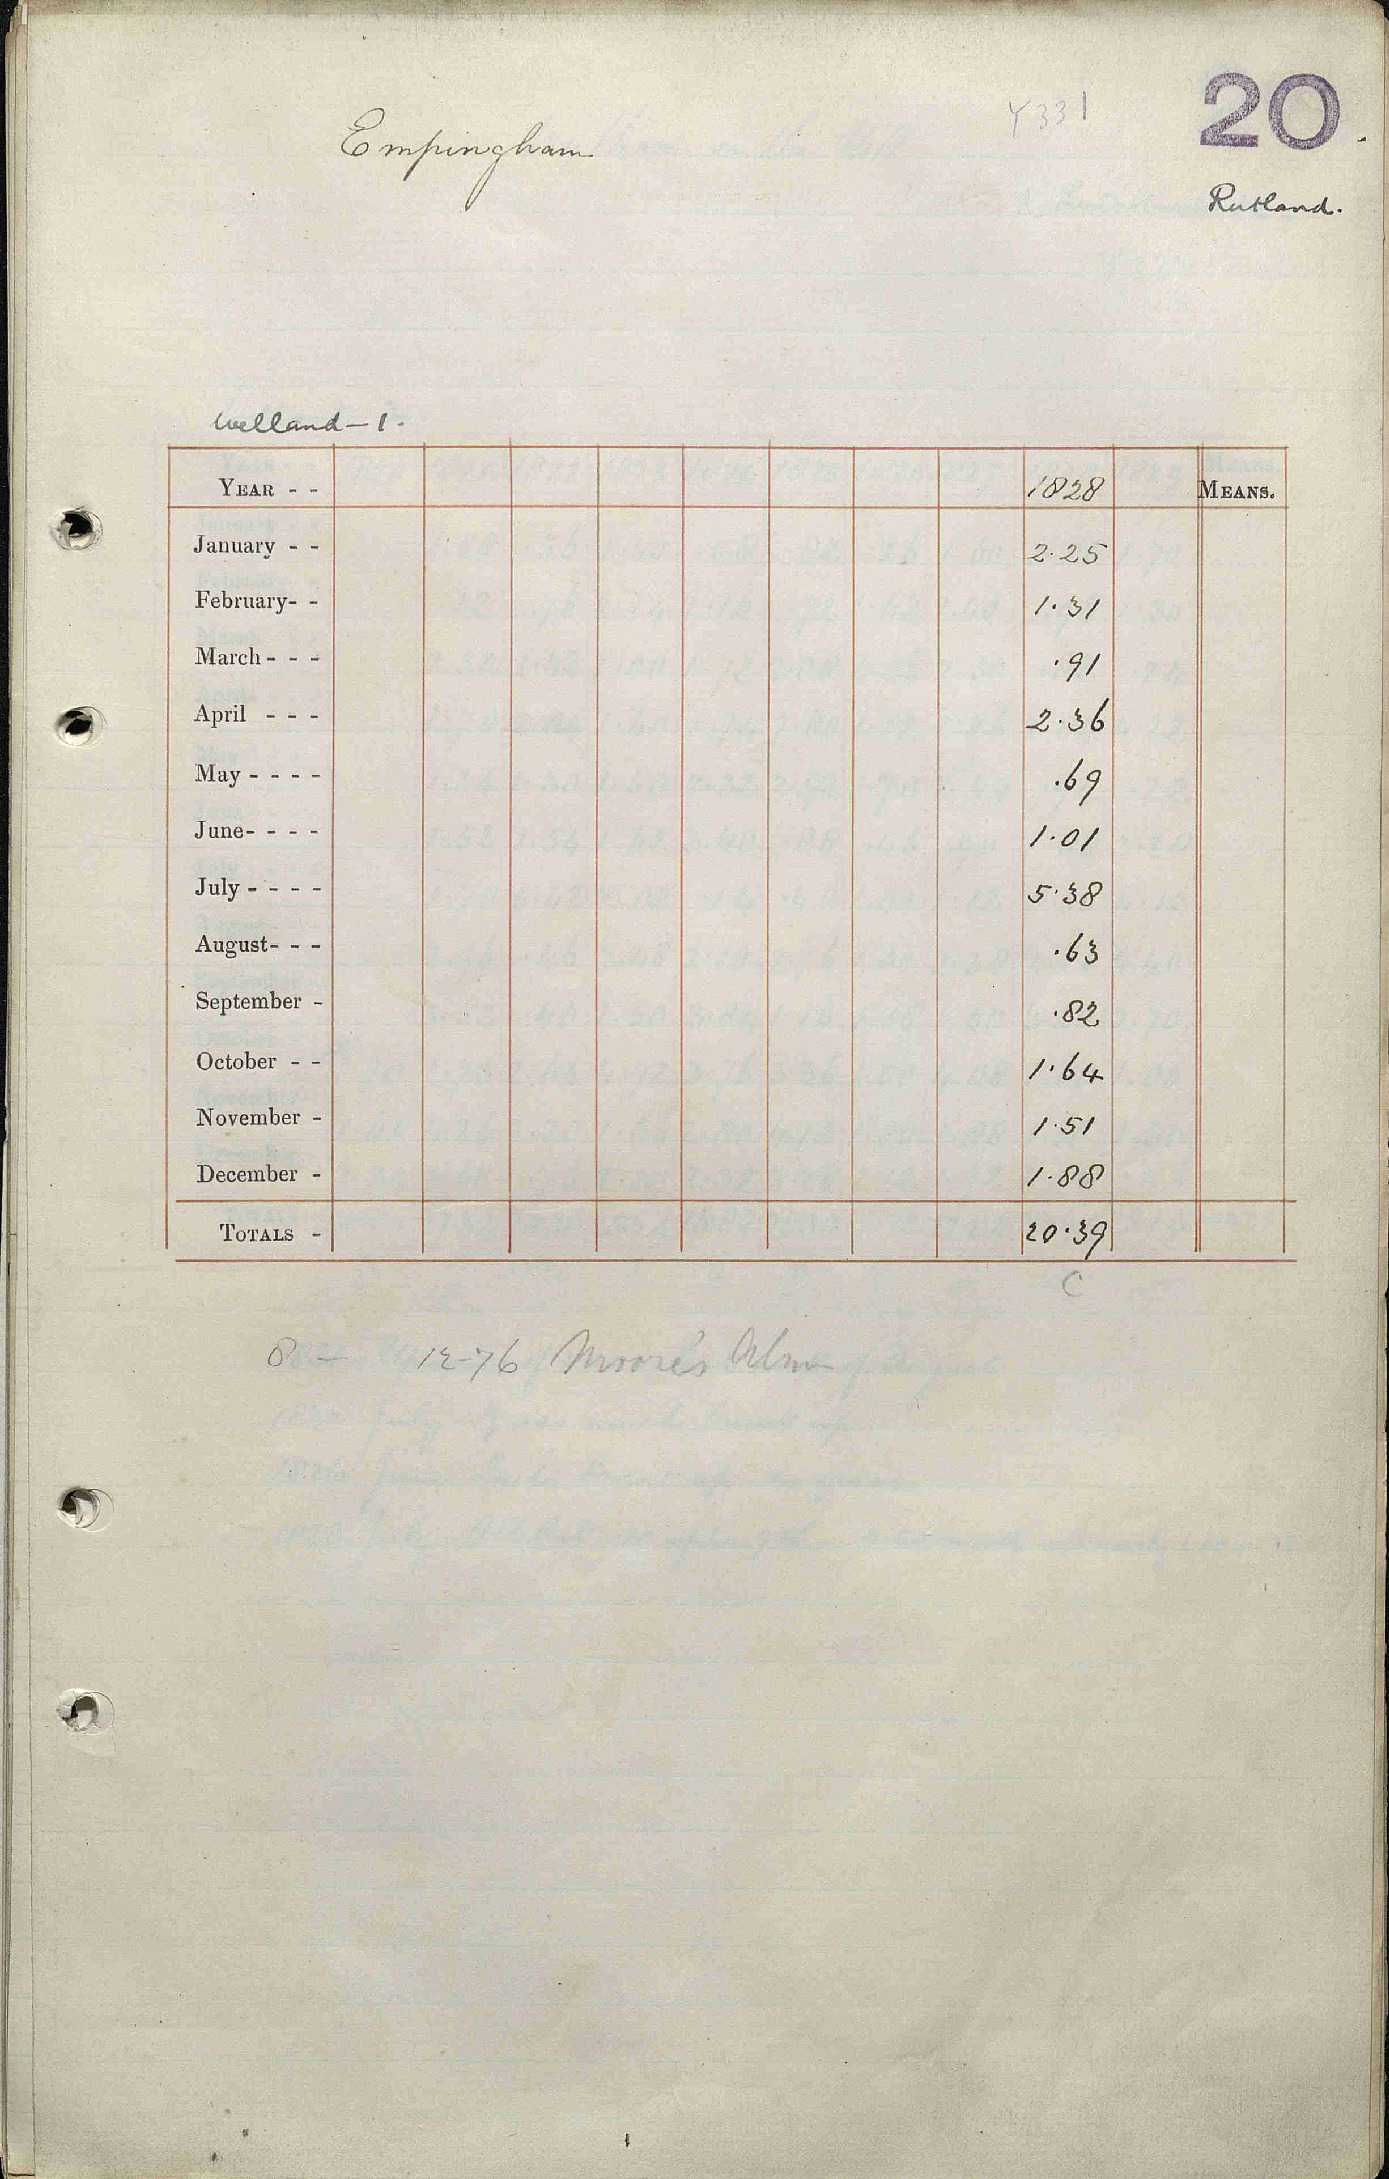 Y331
20
Empingham
Rutland.
Welland - 1.
YEAR - - 1828 MEANS.
January - - 2.25
February- - 1.31
March - - - .91
April - - - 2.36
May - - - - .69
June- - - - 1.01
July - - - - 5.38
August- - - .63
September - .82
October - - 1.64
November - 1.51
December - 1.88
TOTALS - 20.39
C
8 - 12-76 Moore's Alm